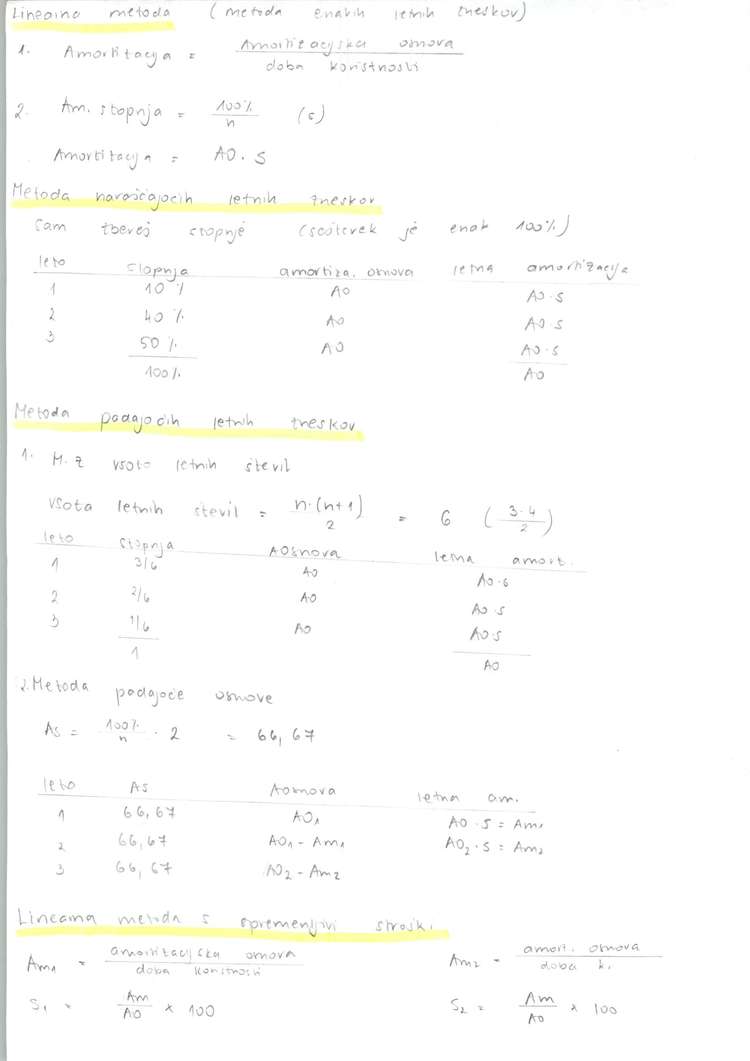 Linearna metoda (metoda enakih letnih zneskov)
1. Amortizacija = Amortizacijska osnova / doba koristnosti
2. Am. stopnja = 100% / n (s)
Amortizacija = AO · s
Metoda naraščajočih letnih zneskov
Sam zbereš stopnje (seštevek je enak 100%)
leto stopnja amortiza. osnova letna amortizacija
1 10% AO AO·s
2 40% AO AO·s
3 50% AO AO·s
100% AO
Metoda padajočih letnih zneskov
1. M. z vsoto letnih števil
vsota letnih števil = n·(n+1) / 2 = 6 (3·4 / 2)
leto stopnja AOsnova letna amort.
1 3/6 AO AO·s
2 2/6 AO AO·s
3 1/6 AO AO·s
1 AO
2. Metoda padajoče osnove
As = 100% / n · 2 = 66,67
leto AS AOsnova letna am.
1 66,67 AO₁ AO·s = Am₁
2 66,67 AO₁ - Am₁ AO₂·s = Am₂
3 66,67 AO₂ - Am₂
Linearna metoda s spremenljivi stroški
Am₁ = amortizacijska osnova / doba koristnosti Am₂ = amort. osnova / doba k.
S₁ = Am / AO × 100 S₂ = Am / AO × 100